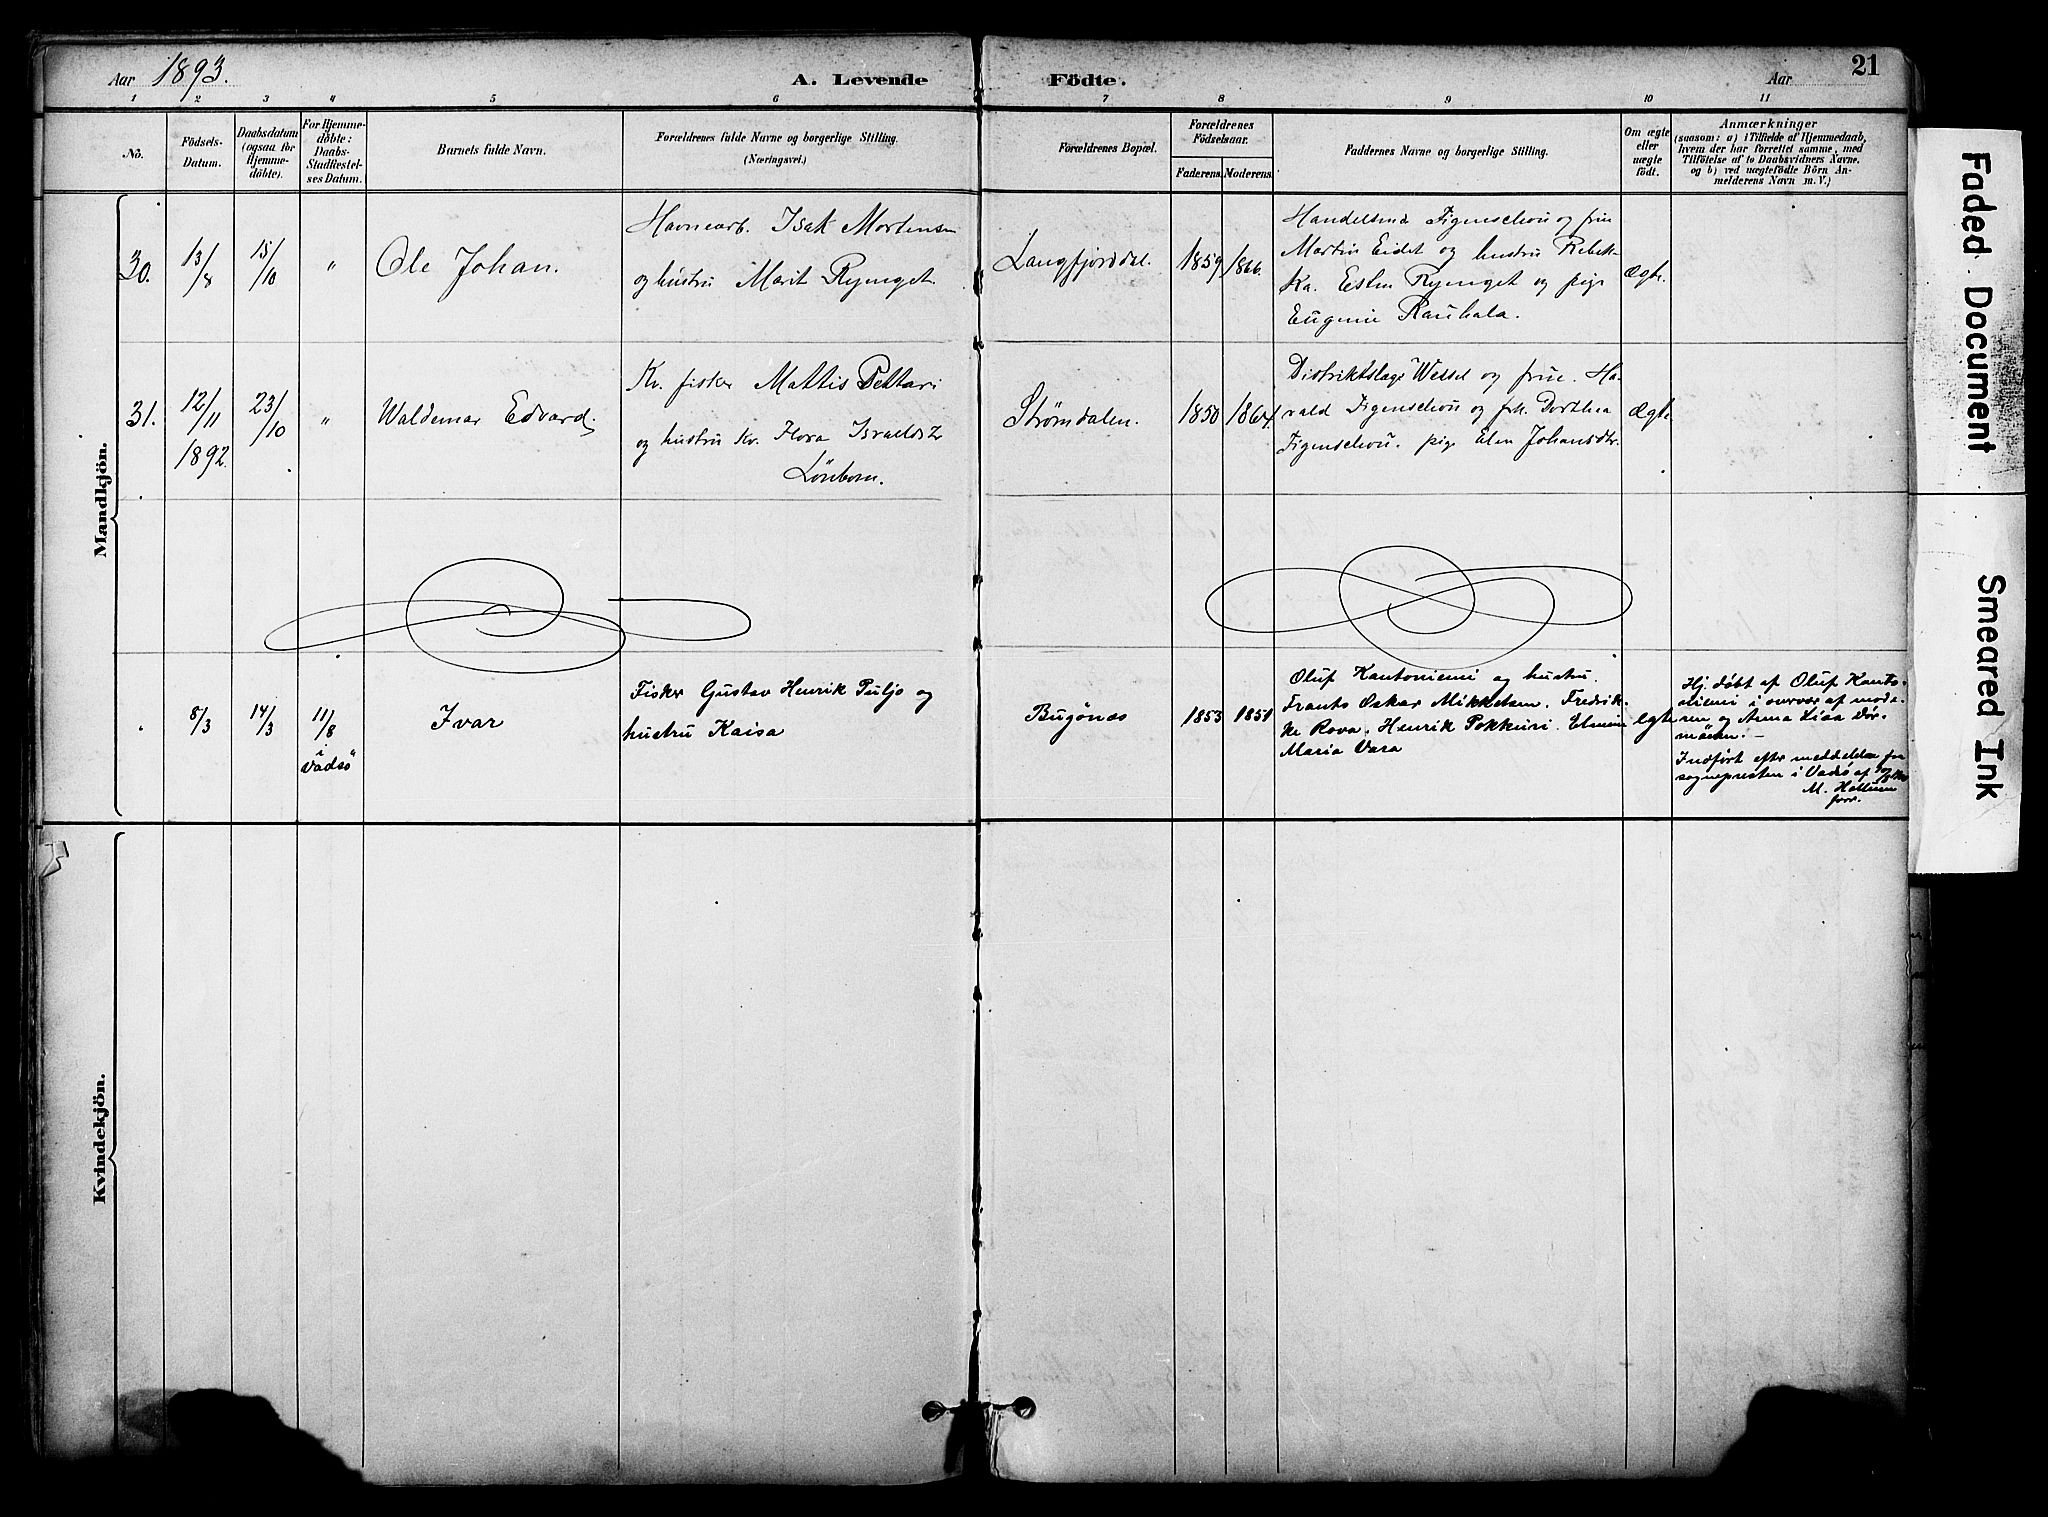 Aar 1893.
A. Levende
Födte.
Aar
21
1 2 3 4 5 6 7 8 9 10 11
No.
Födsels-
Datum.
Daabsdatum
(ogsaa for
Hjemme-
döbte).
For Hjemme-
döbte:
Daabs-
Stadfæstel-
ses Datum.
Barnets fulde Navn.
Forældrenes fulde Navne og borgerlige Stilling.
(Næringsvei.)
Forældrenes Bopæl.
Forældrenes
Födselsaar.
Faderens. Moderens.
Faddernes Navne og borgerlige Stilling.
Om ægte
eller
uægte
födt.
Anmærkninger
(saasom: a) i Tilfælde af Hjemmedaab,
hvem der har forrettet samme, med
Tilföielse af to Daabsvidners Navne.
og b) ved uægtefödte Börn An-
melderens Navn m. V.)
Mandkjön.
30.
13/8
15/10
"
Ole Johan.
Havnearb. Isak Mortensen
og hustru Marit Rynget.
Langfjorddal.
1859
1866.
Handelsmd Figenschou og frue
Martin Eidet og hustru Rebek-
ka. Esten Rynget og pige
Eugenie Rauhala.
Ægte.
31.
12/11
1892.
23/10
"
Waldemar Edvard.
Kv. fisker Mattis Pettari
og hustru kv. Flora Israelsdtr
Lönbom.
Strømdalen.
1850
1864
Distriktslæge Wessel og frue. Ha-
rald Figenschou og frk. Dorthea
Figenschou. pige Elen Johansdtr.
Ægte.
"
8/3
14/3
11/8
i
Vadsö
Ivar
Fisker Gustav Henrik Puljo og
hustru Kaisa
Bugönæs
1853
1851
Oluf Kantoniemi og hustru.
Frants Oskar Mikkelsen. Fredrik-
ke Rova. Henrik Pokkuri. Elmine
Maria Vara
egte
Hj. döbt af Oluf Kanto-
niemi i overvær af mode-
ren og Anna Lisa
Indført efter meddelelse fra
sognepresten i Vadsö af
M. Hallum
Kvindekjön.
Faded Document
Smeared Ink